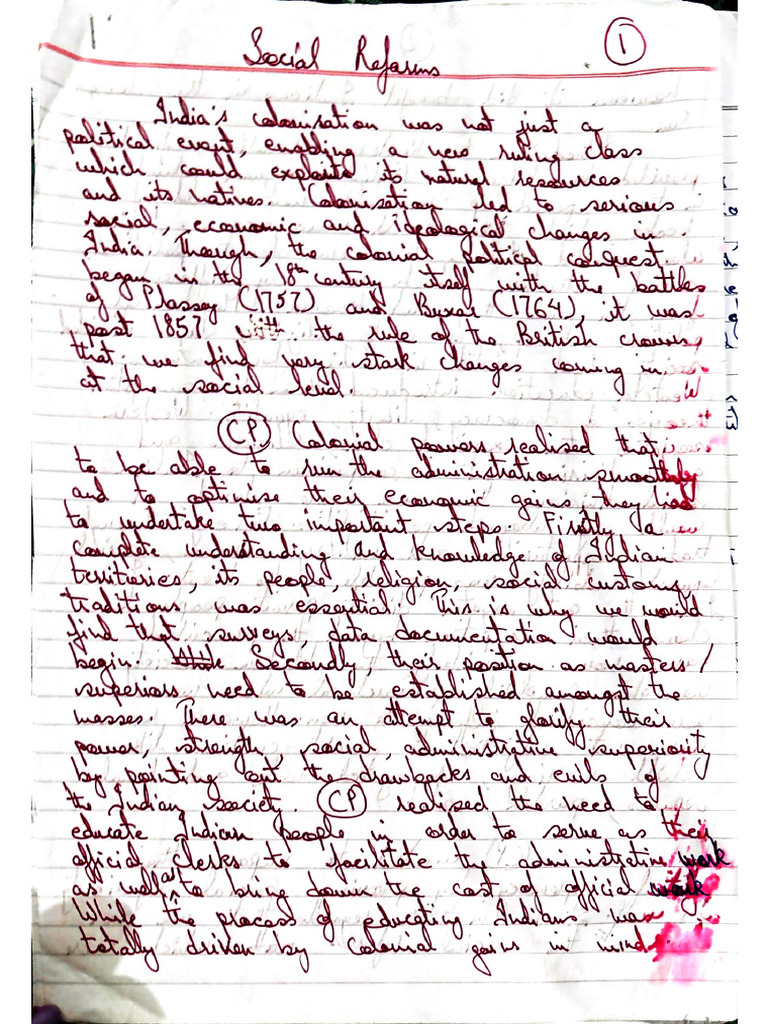 Social Reforms
1
India's colonisation was not just a
political event, enabling a new ruling class
which could exploits its natural resources
and its natives. Colonisation led to serious
social, economic and ideological changes in
India. Though, the colonial political conquest
began in the 18th century itself with the battles
of Plassey (1757) and Buxar (1764), it was
post 1857 with the rule of the British crown
that we find very stark changes coming in
at the social level.
CP Colonial powers realised that
to be able to run the administration smoothly
and to optimise their economic gains they had
to undertake two important steps. Firstly a
complete understanding and knowledge of Indian
territories, its people, religion, social customs,
traditions was essential. This is why we would
find that surveys, data documentation would
begin. Secondly, their position as masters/
superiors need to be established amongst the
masses. There was an attempt to glorify their
power, strength, social, administrative superiority
by pointing out the drawbacks and evils of
the Indian society. CP realised the need to
educate Indian people in order to serve as their
official clerks to facilitate the administrative work
as well as to bring down the cost of official work
While the process of educating Indians was
totally driven by colonial gains in mind